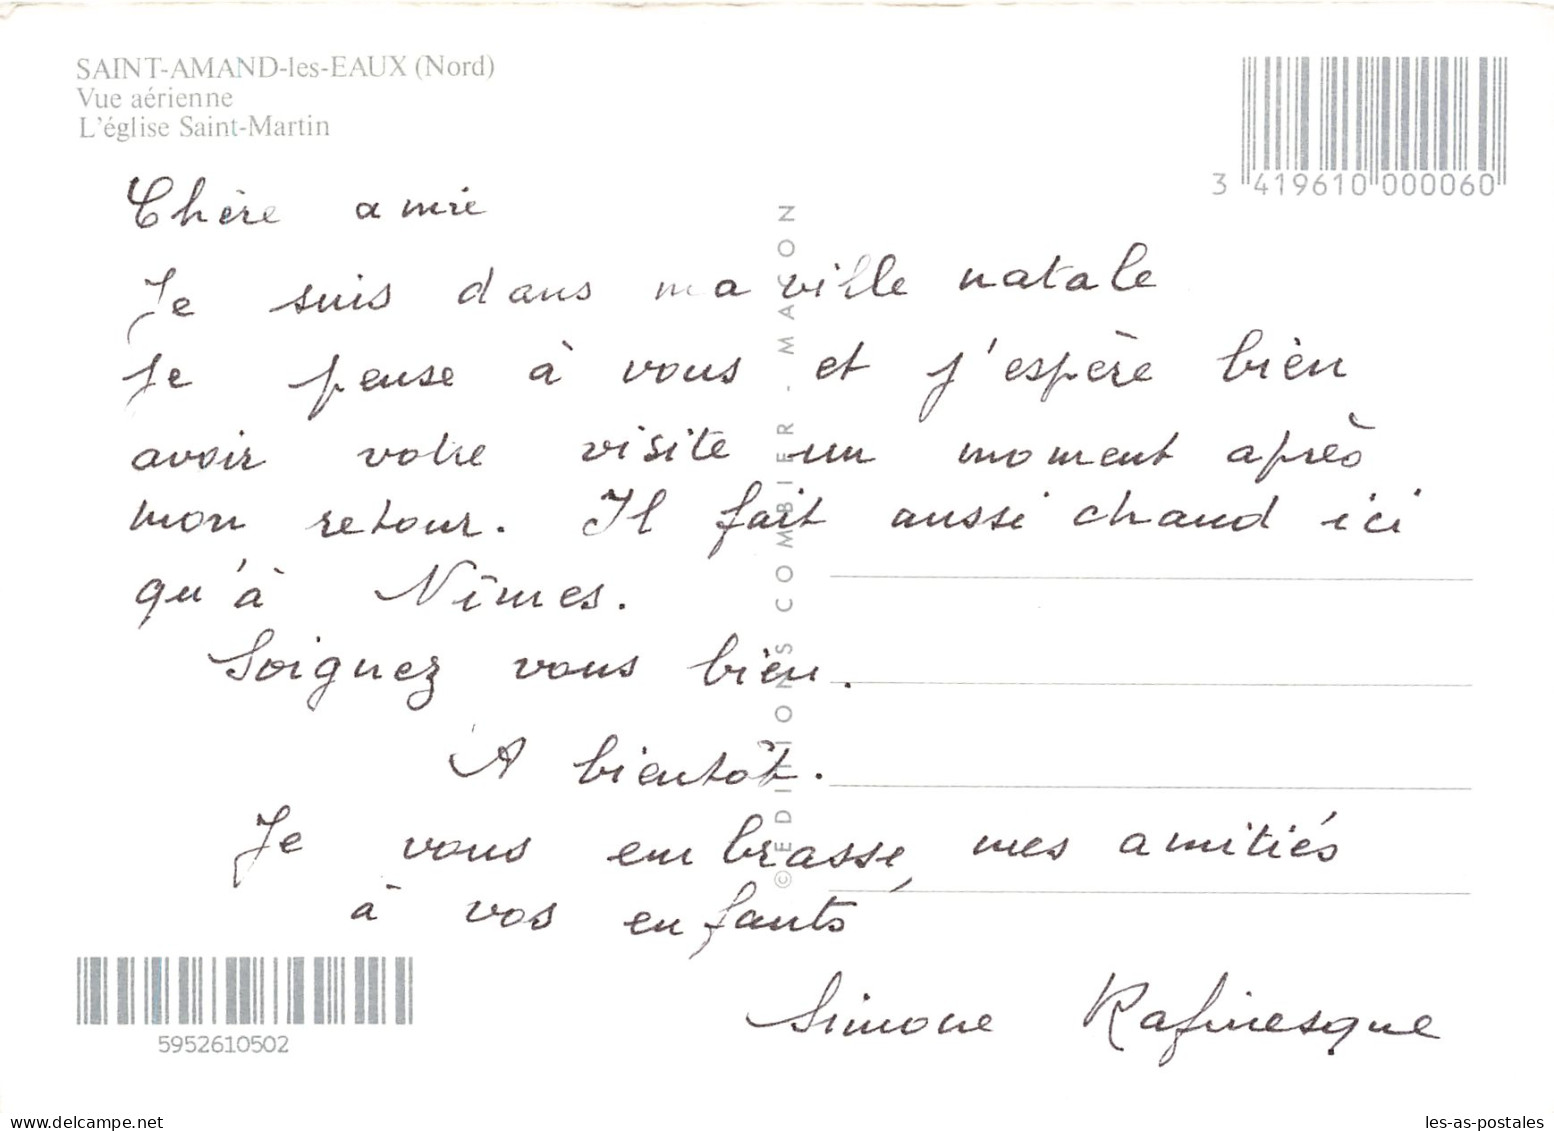 SAINT-AMAND-les-EAUX (Nord)
Vue aérienne
L'église Saint-Martin
3 419610 000060
Chère amie
Je suis dans ma ville natale
Je pense à vous et j'espère bien
avoir votre visite un moment après
mon retour. Il fait aussi chaud ici
qu'à Nîmes.
Soignez vous bien.
A bientôt.
Je vous embrasse, mes amitiés
à vos enfants
Simone Rafinesque
© EDITIONS COMBIER - MACON
5952610502
delcampe.net
les-as-postales